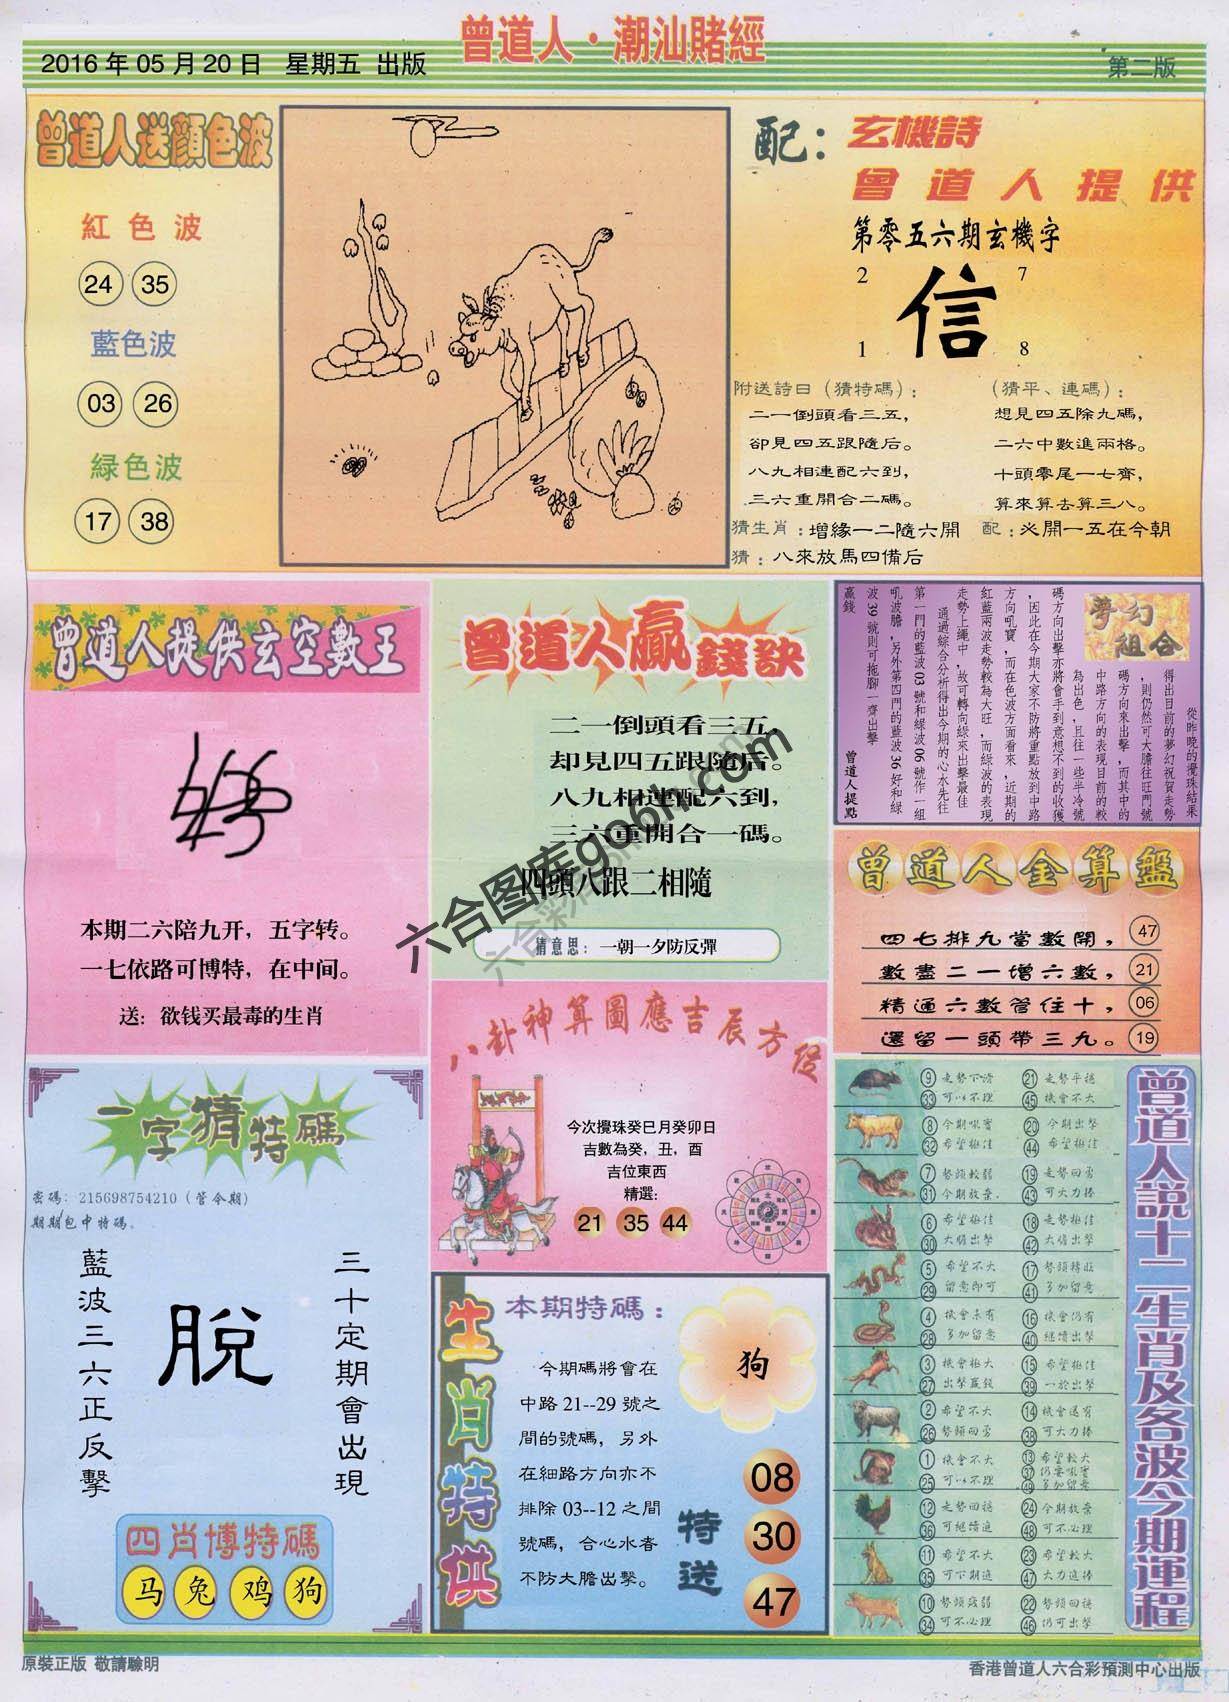 曾道人·潮汕賭經
2016年05月20日 星期五 出版
第二版
曾道人送顏色波
紅色波
24 35
藍色波
03 26
緑色波
17 38
配：玄機詩
曾道人提供
第零五六期玄機字
2 7
信
1 8
附送詩曰（猜特碼）：
二一倒頭看三五，
卻見四五跟隨后。
八九相連配六到，
三六重開合二碼。
（猜平、連碼）：
想見四五除九碼，
二六中數進兩格。
十頭零尾一七齊，
算來算去算三八。
猜生肖：增緣一二隨六開
配：必開一五在今朝
猜：八來放馬四備后
曾道人提供玄空數王
本期二六陪九开，五字转。
一七依路可博特，在中间。
送：欲钱买最毒的生肖
曾道人贏錢訣
二一倒頭看三五，
却見四五跟隨后。
八九相連配六到，
三六重開合一碼。
四頭八跟二相隨
猜意思：一朝一夕防反彈
六合图库go6h.com
夢幻組合
從昨晚的攪珠結果
得出目前的夢幻祝賀走勢
，則仍然可大膽往旺門號
碼方向來出擊，而其中的
中路方向的表現目前的較
為出色，且往一些半冷號
碼方向出擊亦將會手到意想不到的收獲
，因此在今期大家不防將重點放到中路
方向吼寶，而在色波方面看來，近期的
紅藍兩波走勢較為大旺，而綠波的表現
走勢上繩中，故可轉向綠來出擊最佳
通過綜合分析得出今期的心水先往
第一門的藍波03號和綠波06號作一組
吼波膽，另外第四門的藍波36好和綠
波39號則可拖腳一齊出擊
贏錢
曾道人提點
曾道人金算盤
四七排九當數開， 47
數盡二一增六數， 21
精通六數管住十， 06
還留一頭帶三九。 19
八卦神算圖應吉辰方位
今次攪珠癸巳月癸卯日
吉數為癸，丑，酉
吉位東西
精選：
21 35 44
一字猜特碼
密碼：215698754210（管今期）
期期包中特碼。
三十定期會出現
脫
藍波三六正反擊
四肖博特碼
马 兔 鸡 狗
生肖特供
本期特碼：
狗
今期碼將會在
中路21--29號之
間的號碼，另外
在細路方向亦不
排除03--12之間
號碼，合心水者
不防大膽出擊。
特送
08
30
47
曾道人説十二生肖及各波今期運程
⑨ 走勢下滑 ㉑ 走勢平穩
㉝ 可以不理 ㊺ 機會不大
⑧ 今期吼寶 ⑳ 今期出擊
㉜ 希望極佳 ㊹ 希望極佳
⑦ 勢頭較弱 ⑲ 走勢回勇
㉛ 今期放棄. ㊸ 可大力捧
⑥ 希望極佳 ⑱ 走勢極佳
㉚ 大膽出擊 ㊷ 大膽出擊
⑤ 希望不大 ⑰ 勢頭轉旺
㉙ 留意即可 ㊶ 多加留意
④ 機會未有 ⑯ 機會仍有
㉘ 多加留意 ㊵ 繼續出擊
③ 機會極大 ⑮ 希望極佳
㉗ 出擊贏錢 ㊴ 一於出擊
② 希望不大 ⑭ 機會還有
㉖ 勢頭回勇 ㊳ 可大力捧
① 機會不大 ⑬ 希望較大
㉕ 可以不理 ㊲ 仍要吼寶
㊾ 多加留意
⑫ 走勢回穩 ㉔ 今期放棄
㊱ 可繼續追 ㊽ 可不必理
⑪ 希望不大 ㉓ 希望較大
㉟ 可下期追 ㊼ 大力追捧
⑩ 勢頭疲弱 ㉒ 勢頭回穩
㉞ 可不必理 ㊻ 仍可出擊
原裝正版 敬請驗明
香港曾道人六合彩預測中心出版